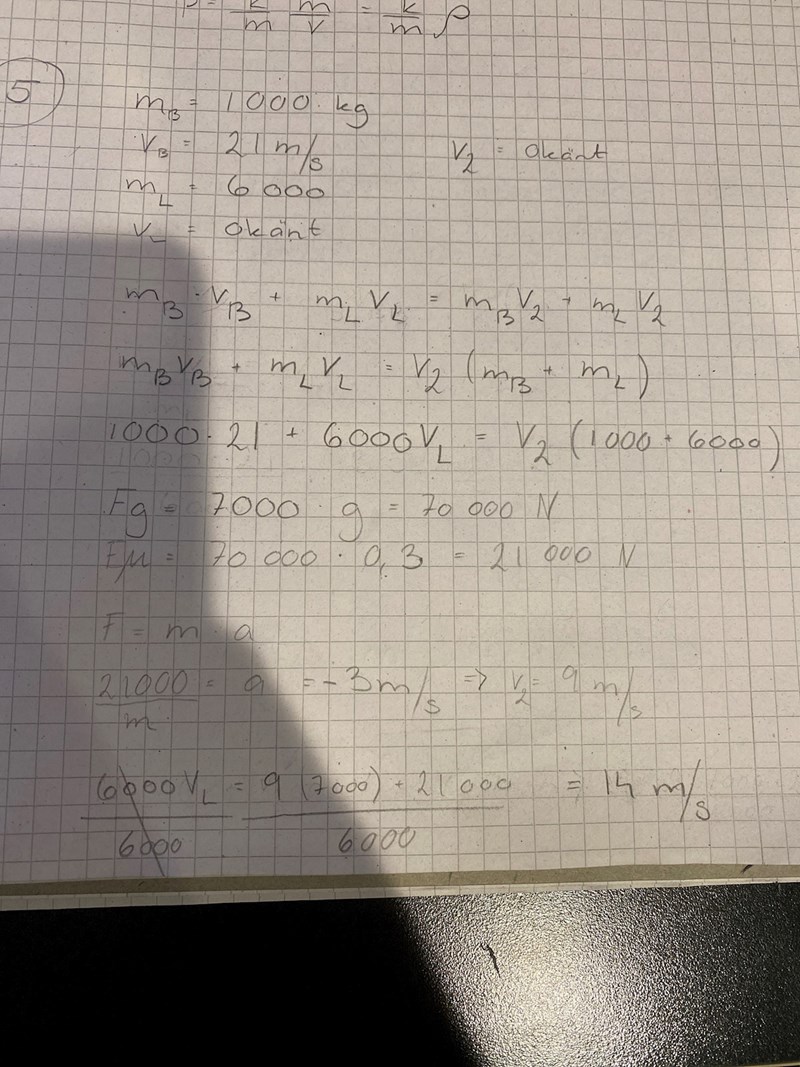 = k/m m/v = k/m ρ
5
m_B = 1000 kg
v_B = 21 m/s    v_2 = okänt
m_L = 6 000
v_L = okänt
m_B · v_B + m_L v_L = m_B v_2 + m_L v_2
m_B v_B + m_L v_L = v_2 (m_B + m_L)
1000 · 21 + 6000 v_L = v_2 (1000 + 6000)
Fg = 7000 · g = 70 000 N
Fμ = 70 000 · 0,3 = 21 000 N
F = m · a
21000/m = a = -3 m/s => v_2 = 9 m/s
6000 v_L/6000 = 9 (7000) + 21 000/6000 = 14 m/s